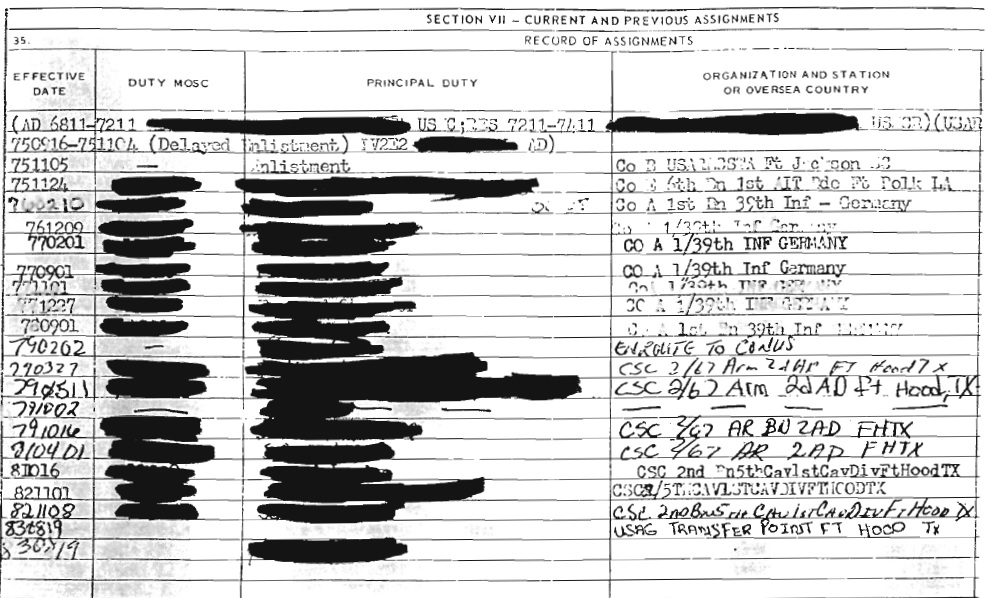 SECTION VII - CURRENT AND PREVIOUS ASSIGNMENTS
35. RECORD OF ASSIGNMENTS
EFFECTIVE DATE DUTY MOSC PRINCIPAL DUTY ORGANIZATION AND STATION OR OVERSEA COUNTRY
(AD 6811-7211 US C;RES 7211-7411 US CR)(USAR
750916-751104 (Delayed Enlistment) AD)
751105 — Enlistment Ft Jackson SC
751124 6th Bn 1st AIT Bde Ft Polk LA
760210 Co A 1st Bn 39th Inf - Germany
761209 1/39th Inf Germany
770201 CO A 1/39th INF GERMANY
770901 CO A 1/39th Inf Germany
771101 1/39th INF GERMANY
771227 CO A 1/39th INF GERMANY
780901 Co A 1st Bn 39th Inf
790202 — ENROUTE TO CONUS
790327 CSC 2/67 Arm 2d AR FT Hood Tx
790511 CSC 2/67 Arm 2d AD Ft Hood, TX
791002 — — — — — —
791016 CSC 2/67 AR BN 2AD FHTX
810401 CSC 2/67 AR 2AD FHTX
811016 CSC 2nd Bn5thCav1stCavDivFtHoodTX
821101 CSC 2/5THCAV1STCAVDIVFTHOODTX
821108 CSC 2ND BN 5TH CAV 1ST CAV DIV FT HOOD TX
830819 USAG TRANSFER POINT FT HOOD TX